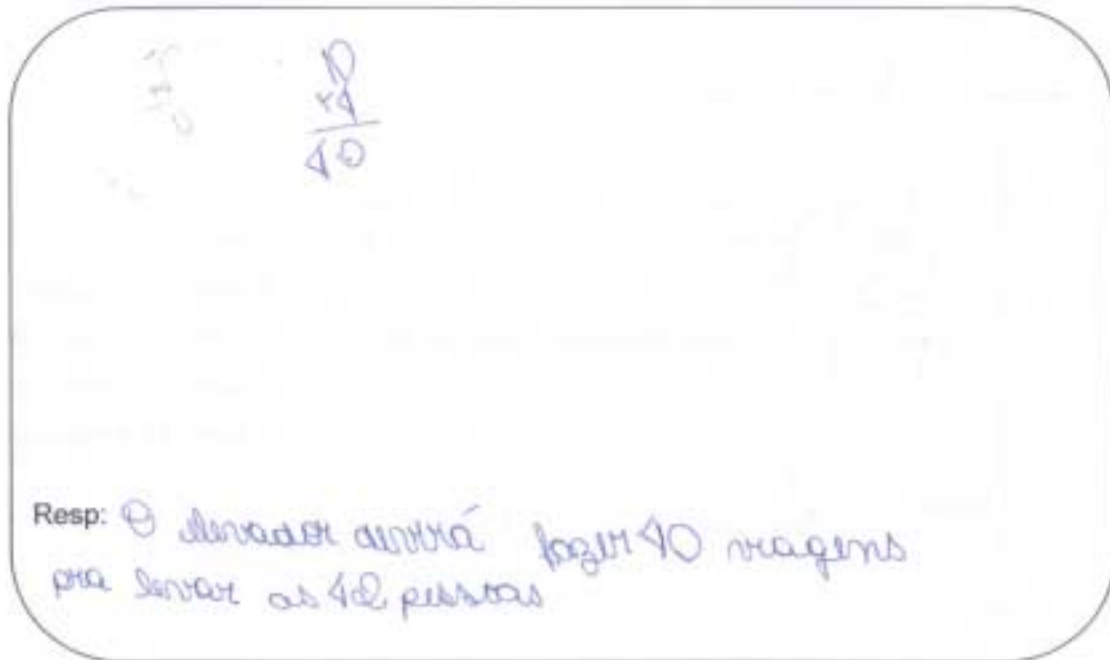 10
x4
40
Resp: O elevador deverá fazer 40 viagens
pra levar as 42 pessoas